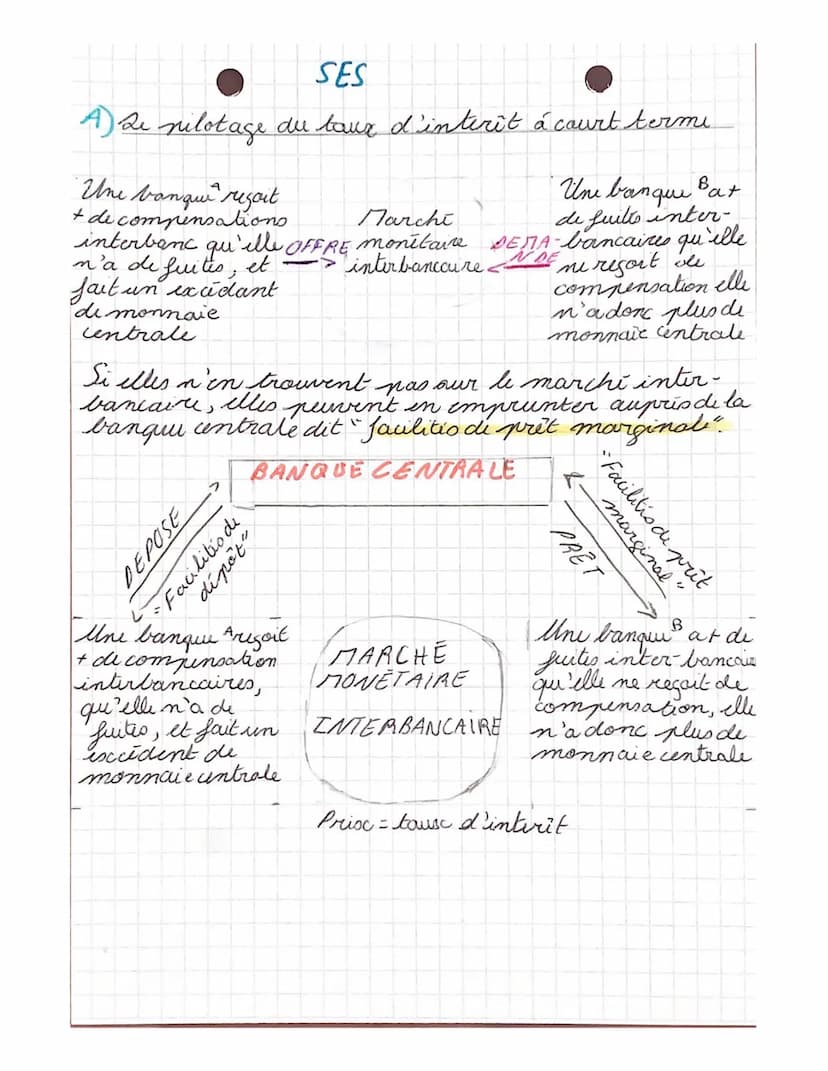 SES
A) Le pilotage du taux d'interêt á court terme
Une banque A reçoit
+ de compensations
interbanc qu'elle
n'a de fuites, et
fait un excédant
de monnaie
centrale
OFFRE
Marché
monétaire
interbancaire
DEMA-
NDE
Une banque B a +
de fuites inter-
bancaires qu'elle
ne reçoit de
compensation elle
n'a donc plus de
monnaie centrale
Si elles n'en trouvent pas sur le marché inter-
bancaire, elles peuvent en emprunter auprès de la
banque centrale dit "facilités de prêt marginale".
BANQUE CENTRALE
DEPOSE
= Facilités de
dépôt"
PRÊT
"Facilités de prêt
marginal"
Une banque A reçoit
+ de compensation
interbancaires,
qu'elle n'a de
fuites, et fait un
excédent de
monnaie centrale
MARCHÉ
MONÉTAIRE
INTERBANCAIRE
Une banque B a + de
fuites inter-bancair
qu'elle ne reçoit de
compensation, elle
n'a donc plus de
monnaie centrale
Prix = taux d'interêt